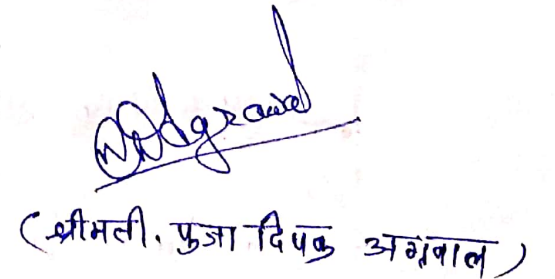 PDAgrawal
(श्रीमती. पुजा दिपक अग्रवाल)